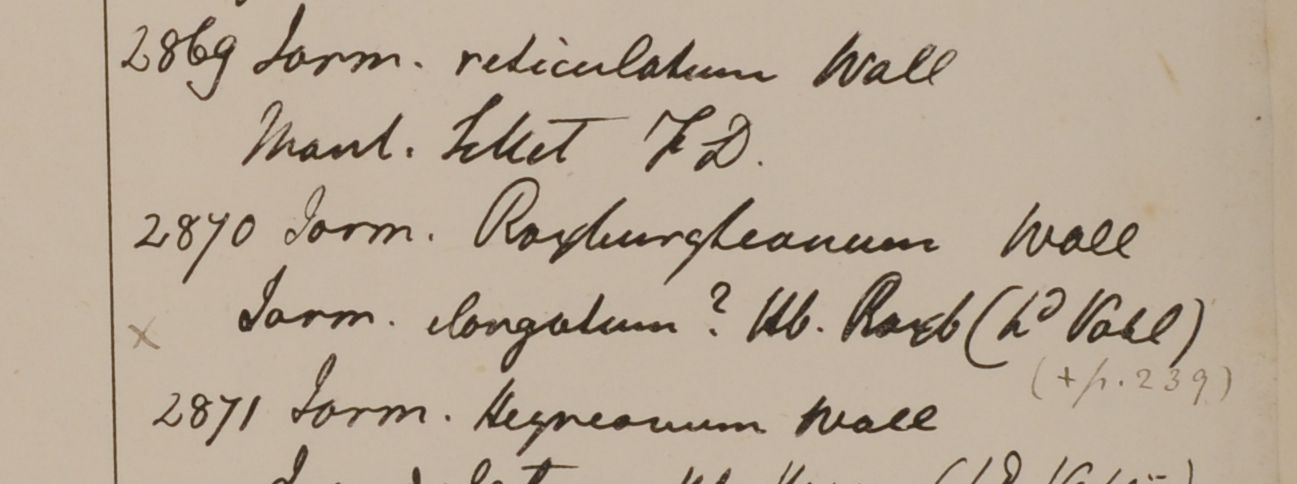 2869 Jasm. reticulatum Wall
Mont. Sillet F D.
2870 Jasm. Roxburghianum Wall
Jasm. elongatum ? Hb. Roxb (hd Vahl)
x (+ p. 239)
2871 Jasm. Heyneanum Wall